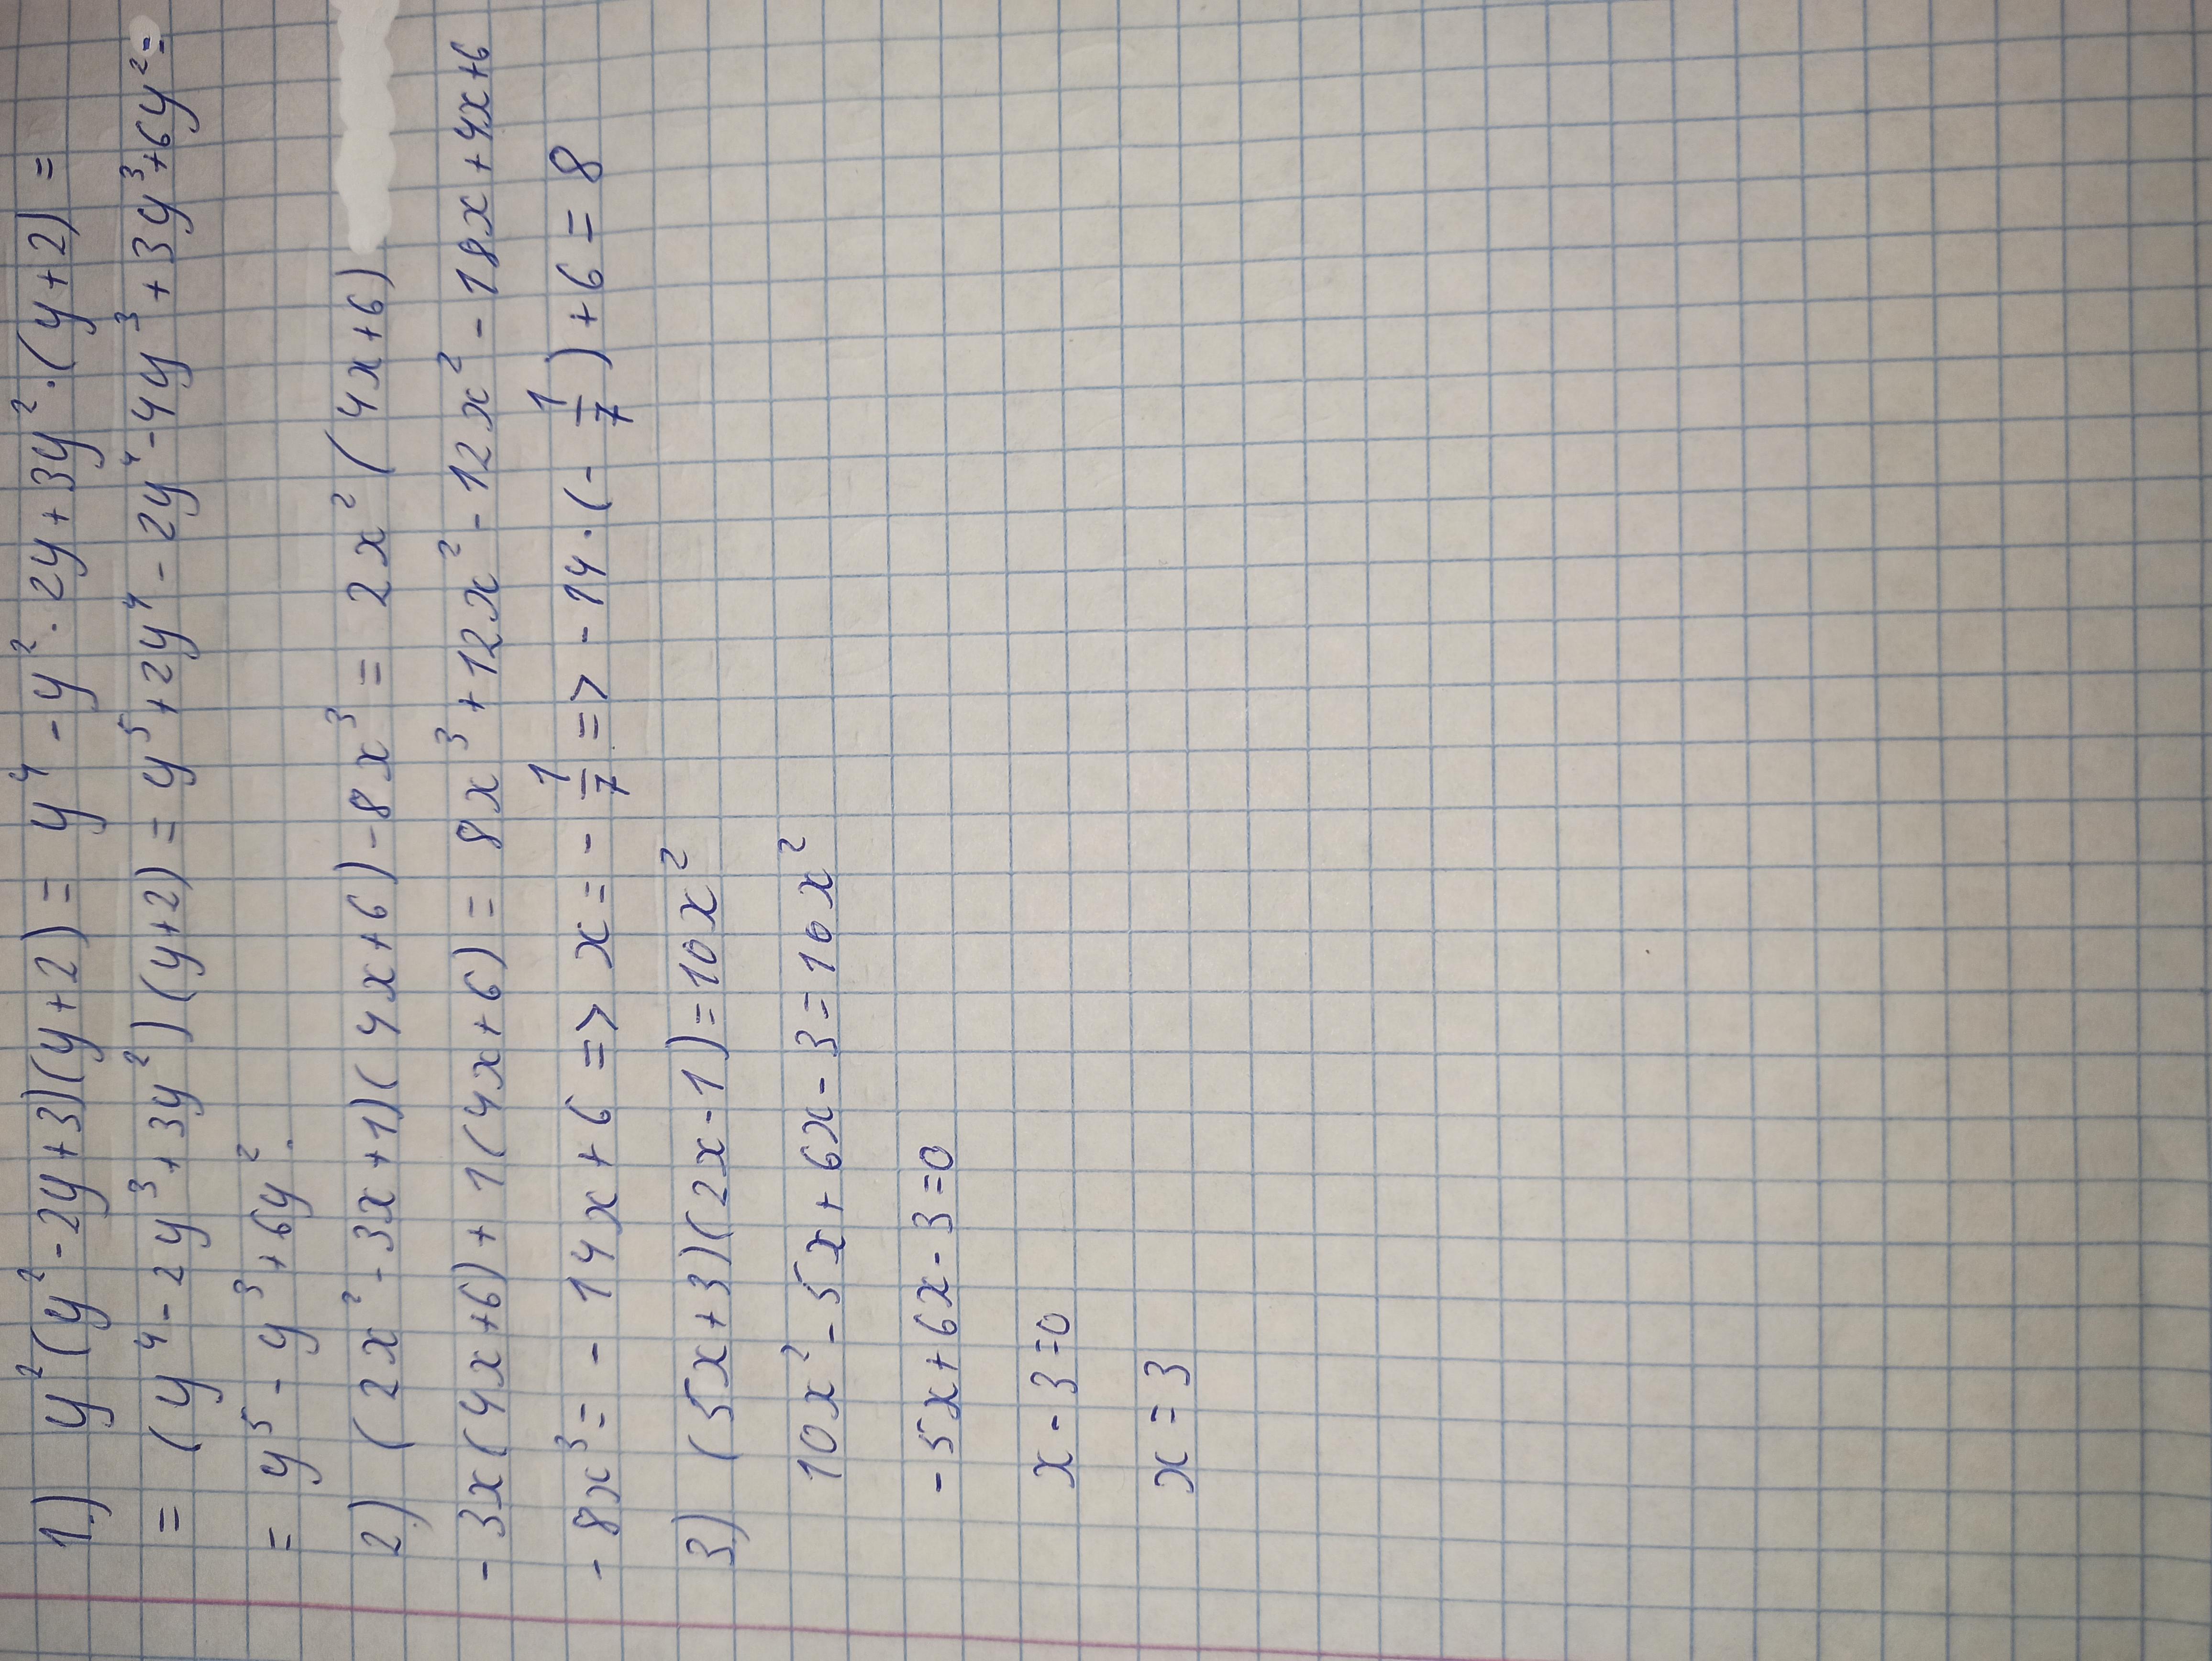 1) y²(y²-2y+3)(y+2) = y⁴-y²·2y+3y²·(y+2) =
= (y⁴-2y³+3y²)(y+2) = y⁵+2y⁴-2y⁴-4y³+3y³+6y²=
= y⁵-y³+6y².
2) (2x²-3x+1)(4x+6)-8x³ = 2x²(4x+6)
-3x(4x+6)+1(4x+6) = 8x³+12x²-12x²-18x+4x+6
-8x³ = -14x+6 => x = -1/7 => -14·(-1/7)+6 = 8
3) (5x+3)(2x-1)=10x²
10x²-5x+6x-3=10x²
-5x+6x-3=0
x-3=0
x=3